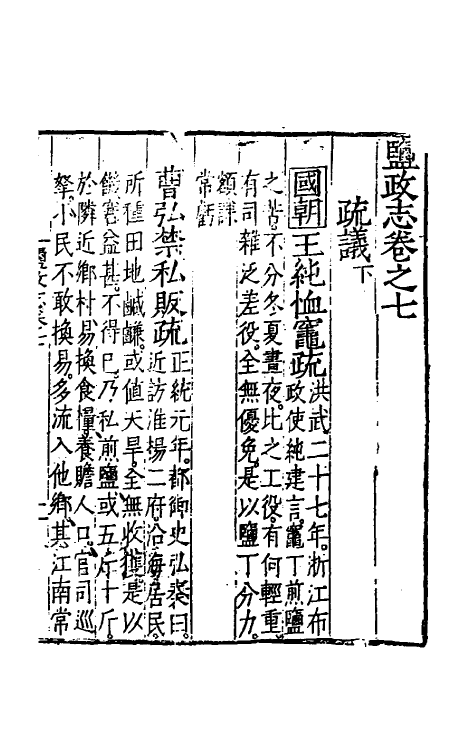 鹽政志卷之七
疏議下
國朝王純恤竈疏洪武二十七年浙江布
政使純建言竈丁煎鹽
之苦不分冬夏晝夜比之工役有何輕重
有司雜泛差役全無優免是以鹽丁分力
額課
常虧
曹弘禁私販疏正統元年都御史弘奏曰
近訪淮楊二府沿海居民
所種田地鹹鹻或值天旱全無收獲是以
饑窘益甚不得已乃私煎鹽或五斤十斤
於隣近鄉村易換食糧養贍人口官司巡
拏小民不敢換易多流入他鄉其江南常